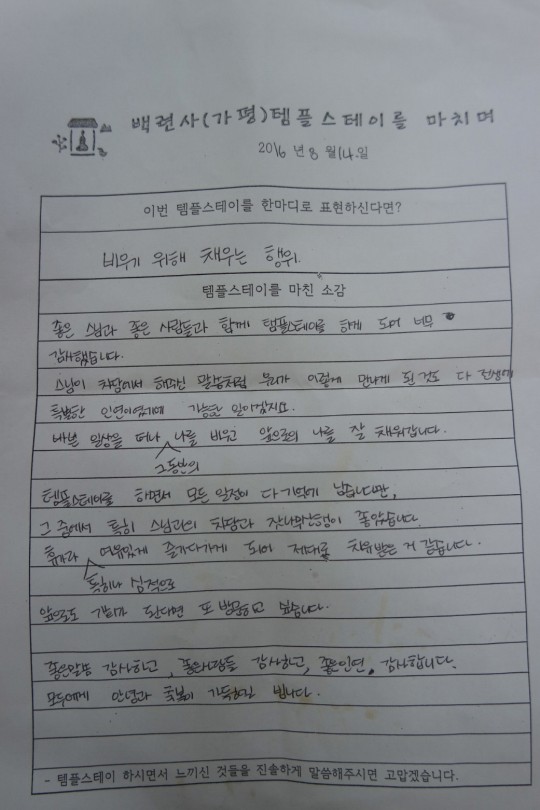 백련사(가평)템플스테이를 마치며
2016 년 8 월 14.일
이번 템플스테이를 한마디로 표현하신다면?
비우기 위해 채우는 행위.
템플스테이를 마친 소감
좋은 스님과 좋은 사람들과 함께 템플스테이를 하게 되어 너무
감사했습니다.
스님이 차담에서 해주신 말씀처럼 우리가 이렇게 만나게 된 것도 다 전생에
특별한 인연이였기에 가능한 일이겠지요.
바쁜 일상을 떠나 나를 비우고 앞으로의 나를 잘 채워갑니다.
그동안의
템플스테이를 하면서 모든 일정이 다 기억에 남습니다만,
그 중에서 특히 스님과의 차담과 잣나무산행이 좋았습니다.
휴가라 여유있게 즐기다가게 되어 제대로 치유받은 거 같습니다.
특히나 심적으로
앞으로도 기회가 된다면 또 방문하고 싶습니다.
좋은말씀 감사하고, 좋은사람들 감사하고, 좋은인연, 감사합니다.
모두에게 안녕과 축복이 가득하길 빕니다.
- 템플스테이 하시면서 느끼신 것들을 진솔하게 말씀해주시면 고맙겠습니다.